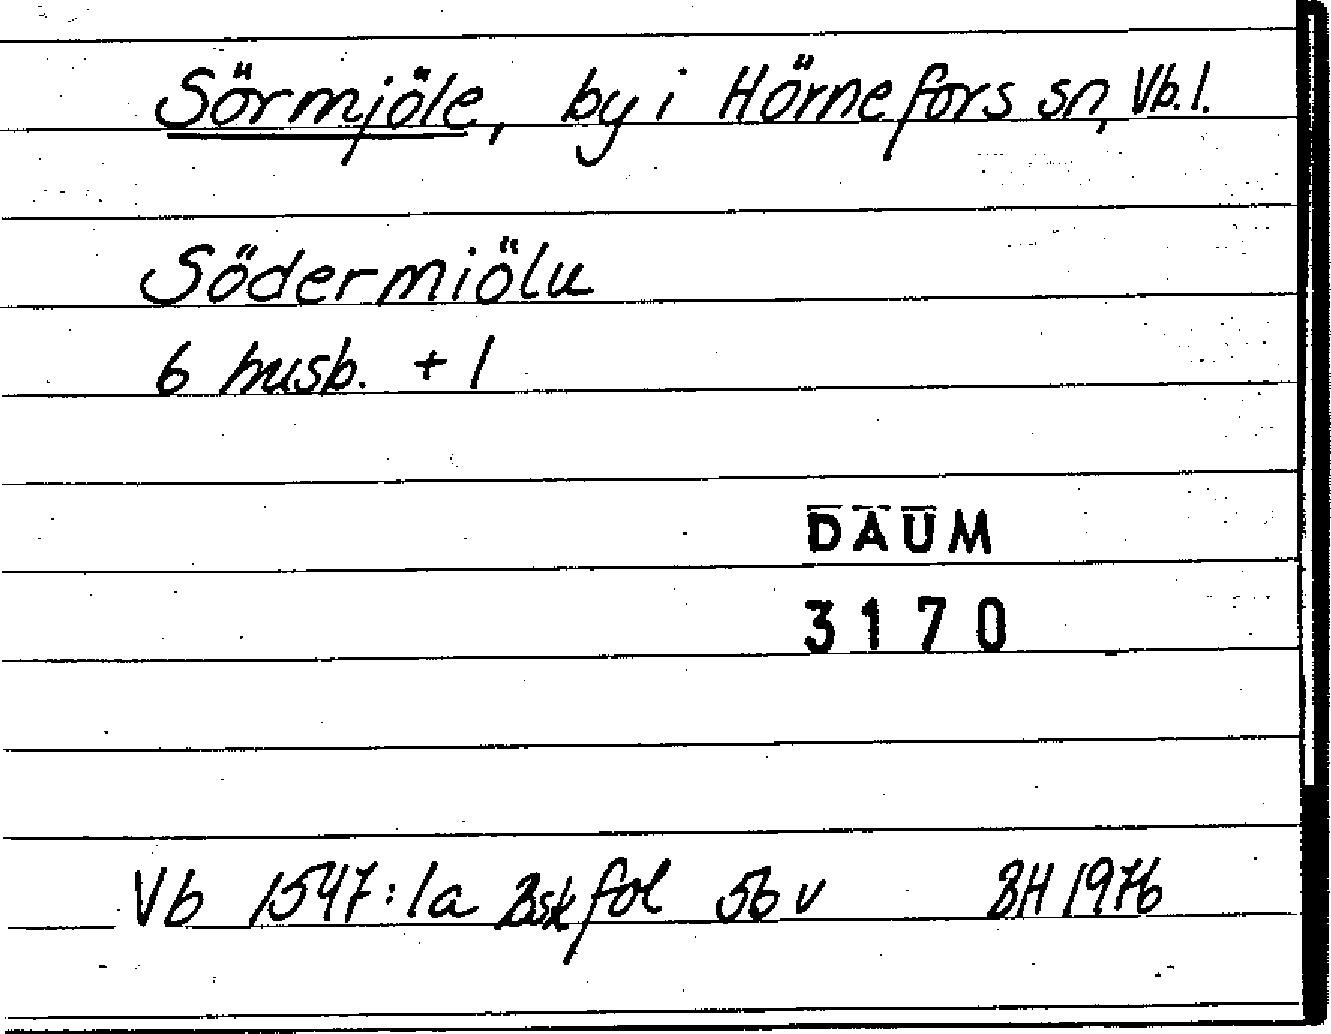 Sörmjöle, by i Hörnefors sn, Vb.l.
Södermiölu
6 husb. + 1
DAUM
3170
Vb 1547:1a Bsk fol 56 v BH 1976